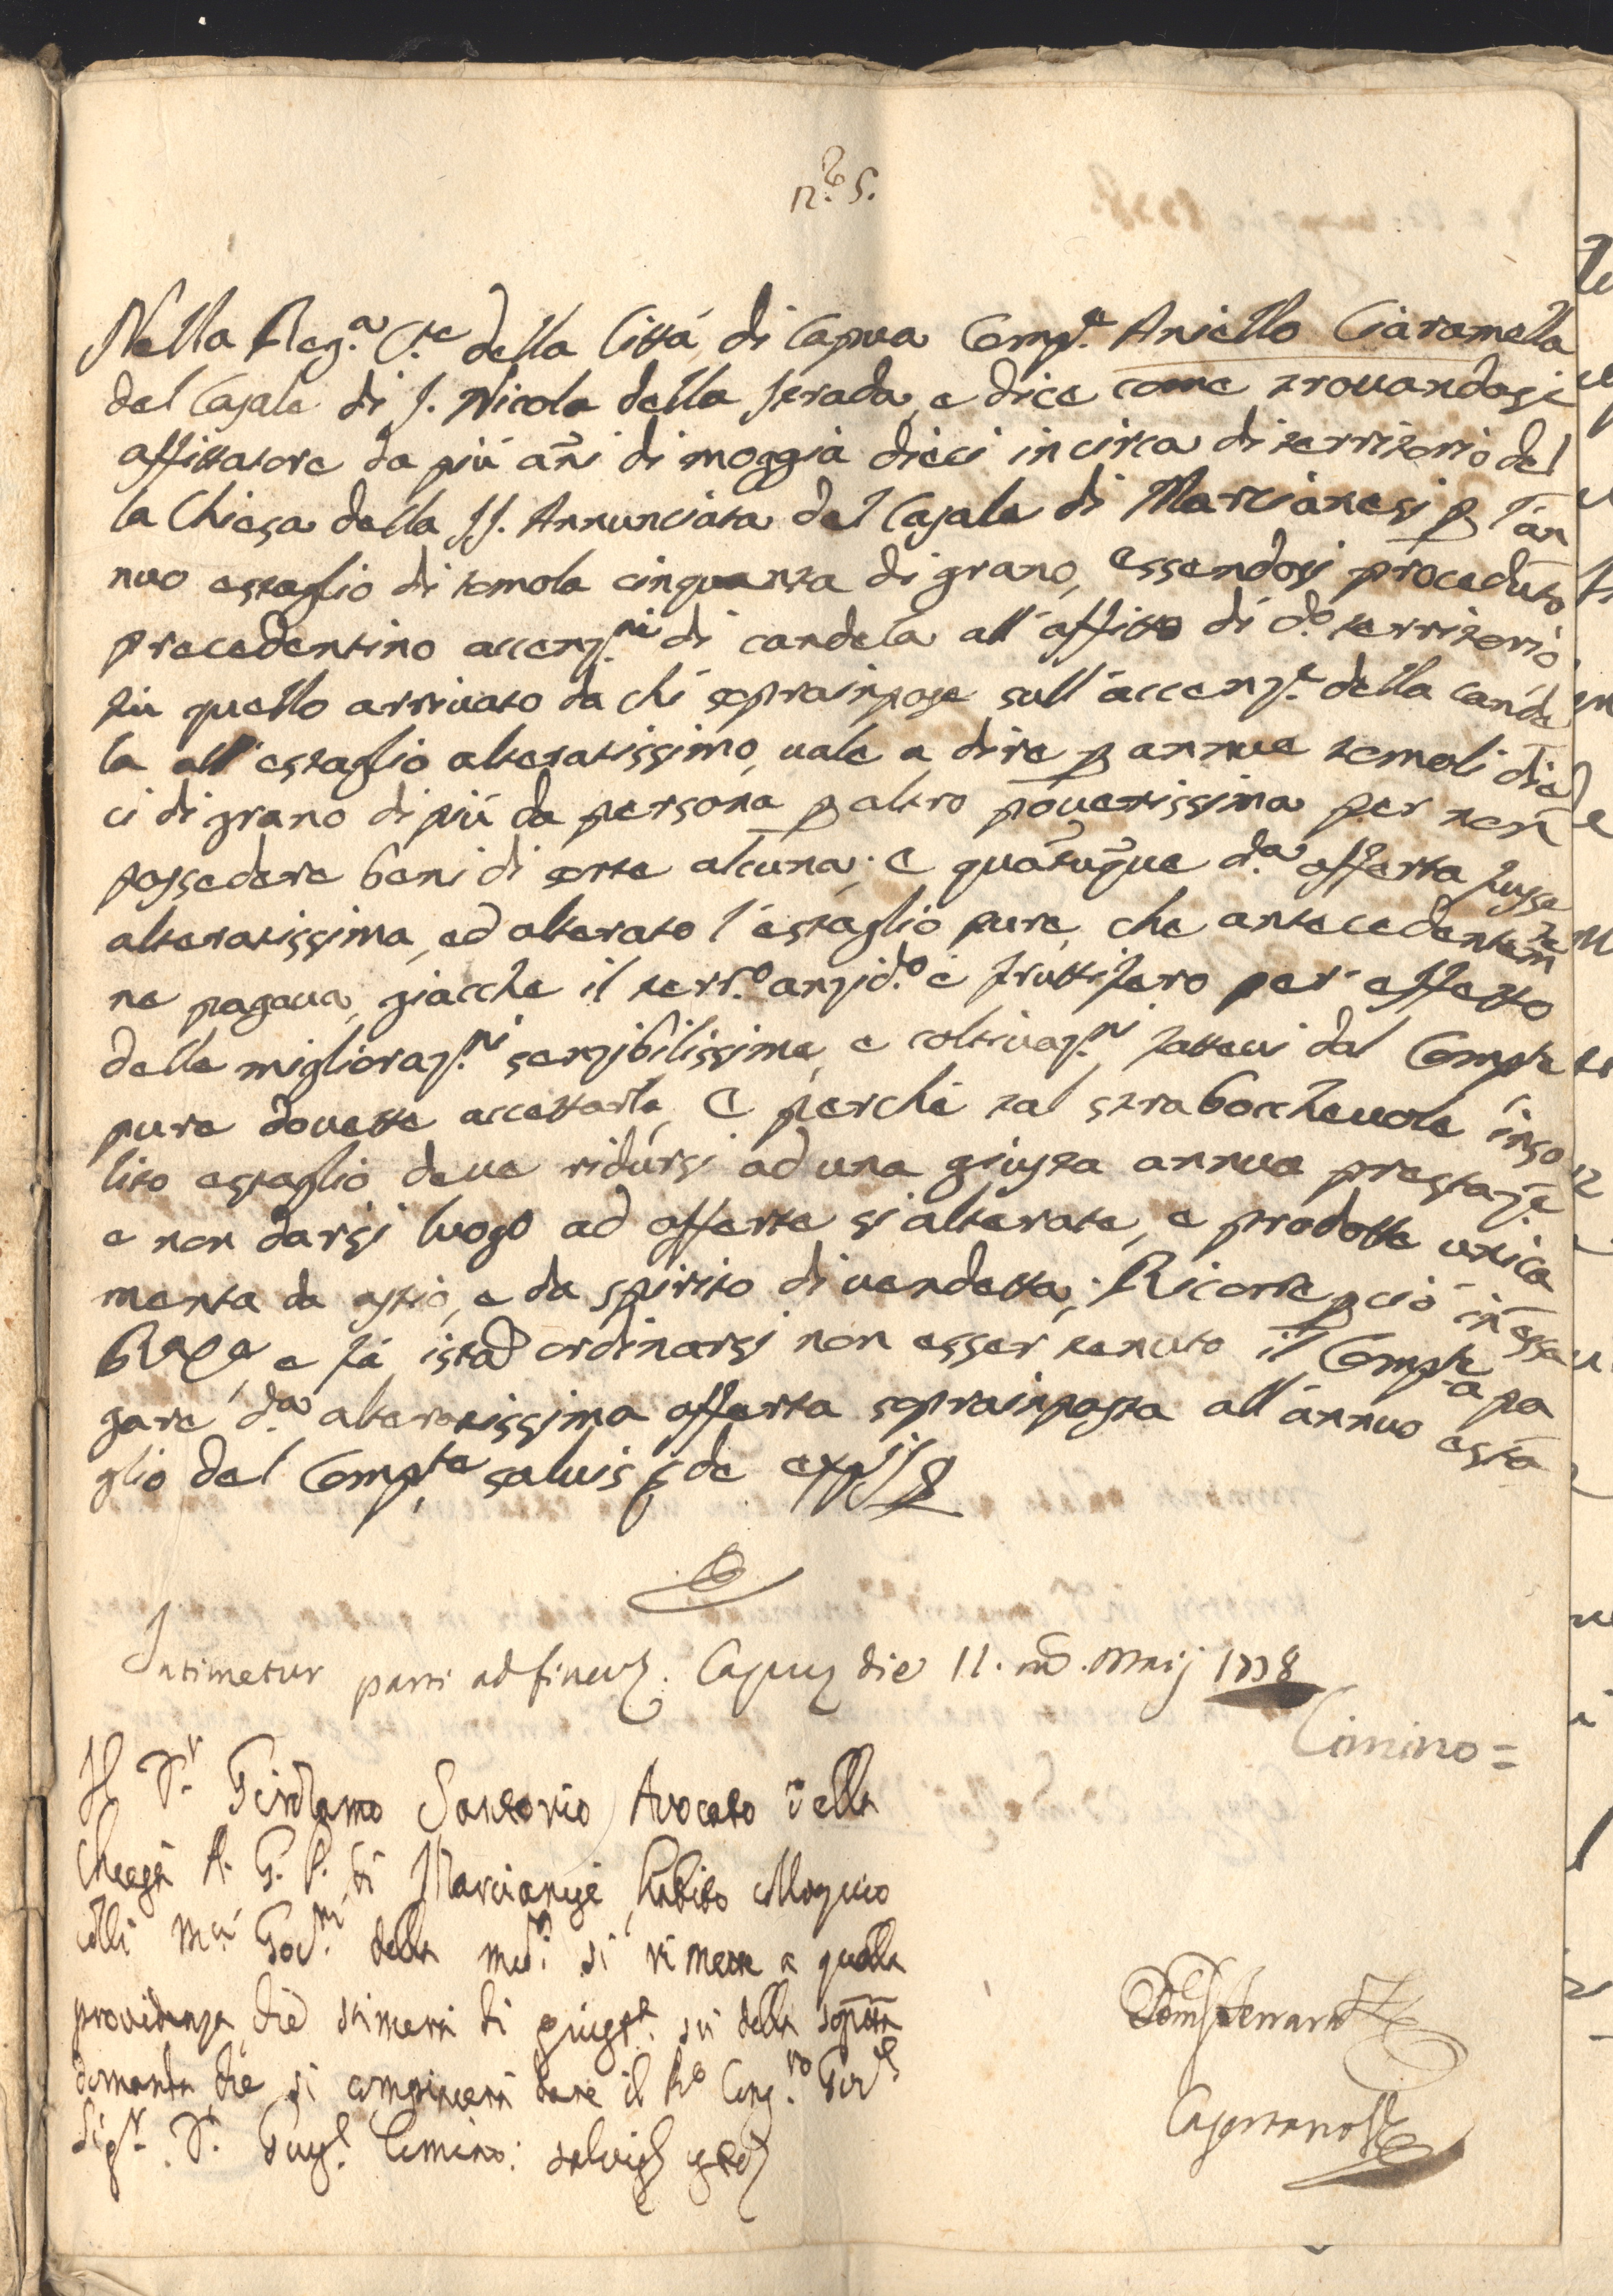 n.º 5.
Nella Reg.a C.te della Città di Capua Comp.e Aniello Ciaramella
del Casale di S. Nicola della Strada, e dice come trovandosi
affittatore da più añi di moggia dieci in circa di territorio del
la Chiesa della SS. Annunciata del Casale di Marcianesi p l'an
nuo estaglio di tomola cinquanta di grano, essendosi proceduto
precedentino accenz.ni di candela all'affitto di d.o territorio
fù quello arrivato da chi soprainpose sull'accenz.e della cande
la all'estaglio alteratissimo, vale a dire p annue tomoli die
ci di grano di più da persona p altro poverissima per non
possedere beni di sorte alcuna; e quãtuq̃ue d.a offerta fusse
alteratissima, ed alterato l'estaglio pure, che antecedentem.te
ne pagava, giacche il terr.o anzid.o è fruttifero per effetto
delle miglioraz.ni senzibilissime, e coltivaz.ni fattevi dal Comp.te
pure dovette accettarla. E perche tal straboccchevole inso
lito estaglio deve ridursi ad una giusta annua prestaz.e
e non darsi luogo ad offerte si alterate, e prodotte unica
mente da astio, e da spirito di vendetta; Ricorre p ciò in essa
e fà ist.a ordinarsi non esser tenuto il Comp.te a pa
gare d.a alteratissima offerta soprainposta all'annuo esta
glio del Comp.te salvis
Intimetur parti ad finem. Capuæ die 11. m. Maij 1778
Cimino =
Il D.r Girolamo Santorio Avocato della
Chiesa A. G. P. di Marcianise habito colloquio
colli M.ci Gov.ni della med.a si rimette a quella
providenza che stimerà di giust.a sù della sop.tta
domanda, che si compiacerà dare il R.o Cons.ro Gov.e
Sig.r D. Gugl. Cimino: salvis
Dom. Ferrara
Capertano